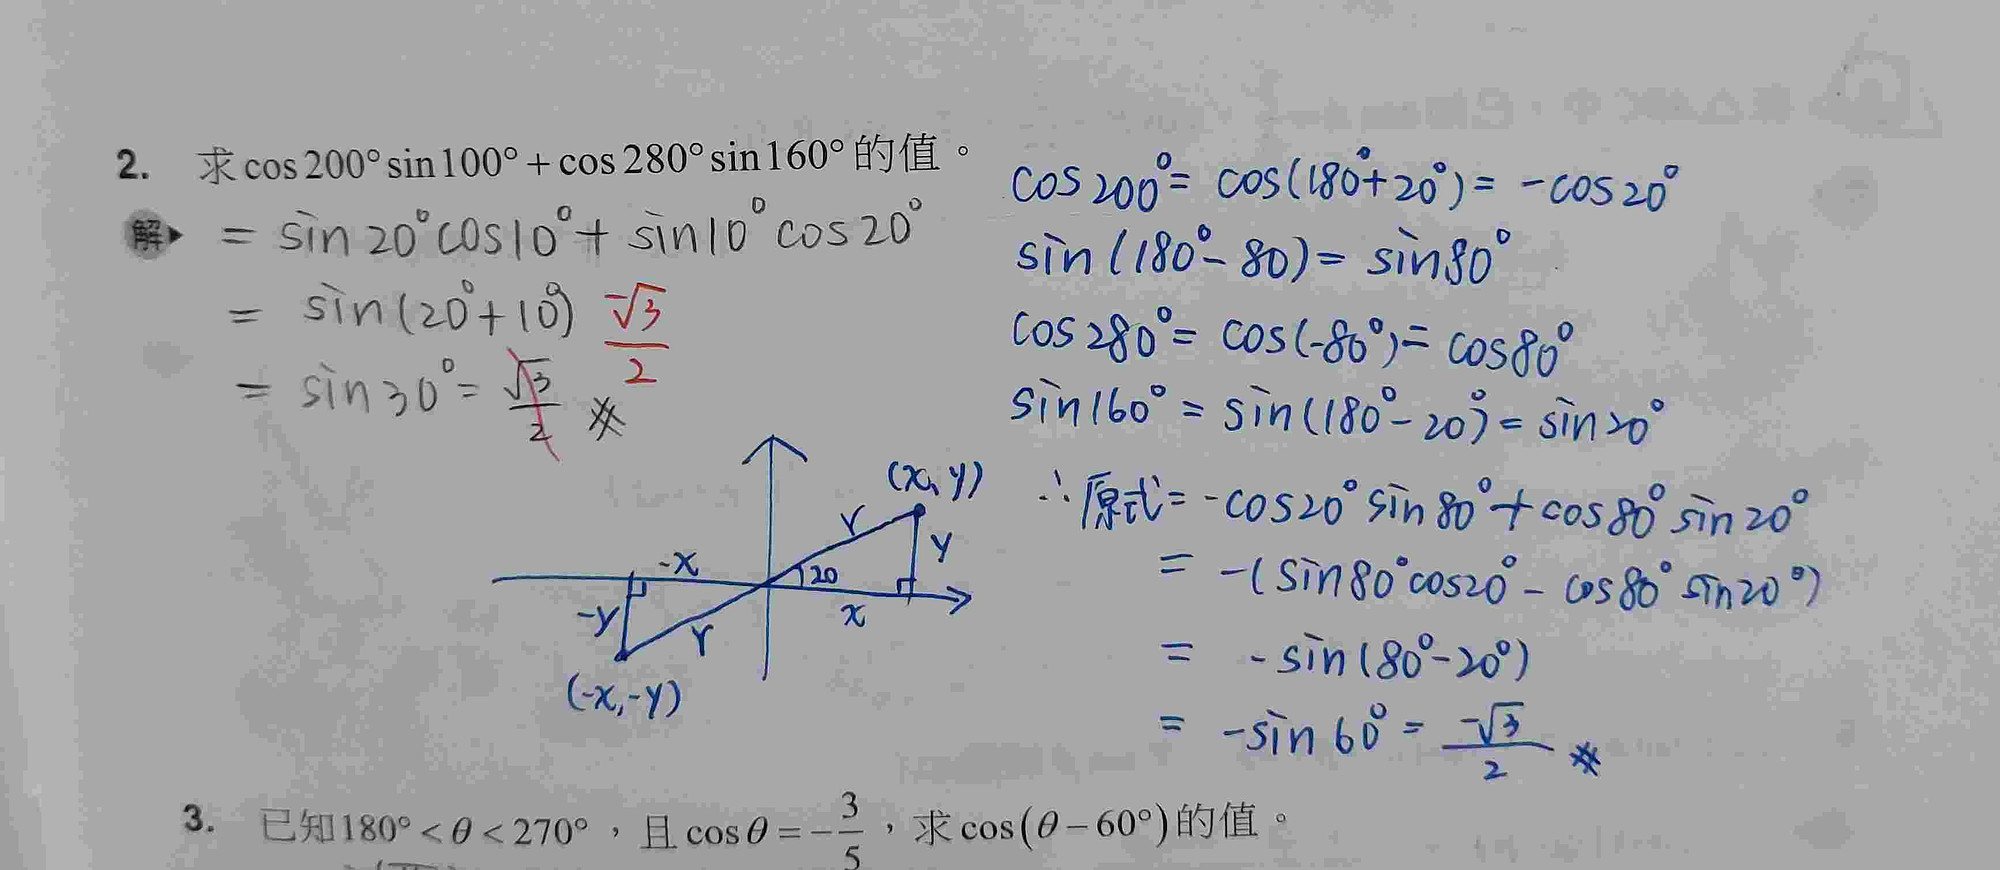 2. 求cos200°sin100°+cos280°sin160°的值。
解 = sin20°cos10°+sin10°cos20°
= sin(20°+10°) -√3/2
= sin30°=√3/2 ※
cos200°=cos(180°+20°)=-cos20°
sin(180°-80)=sin80°
cos280°=cos(-80°)=cos80°
sin160°=sin(180°-20°)=sin20°
∴原式=-cos20°sin80°+cos80°sin20°
= -(sin80°cos20°-cos80°sin20°)
= -sin(80°-20°)
= -sin60°=-√3/2 ※
(x,y)
r
y
-x
20
x
-y
r
(-x,-y)
3. 已知180°<θ<270°，且cosθ=-3/5，求cos(θ-60°)的值。